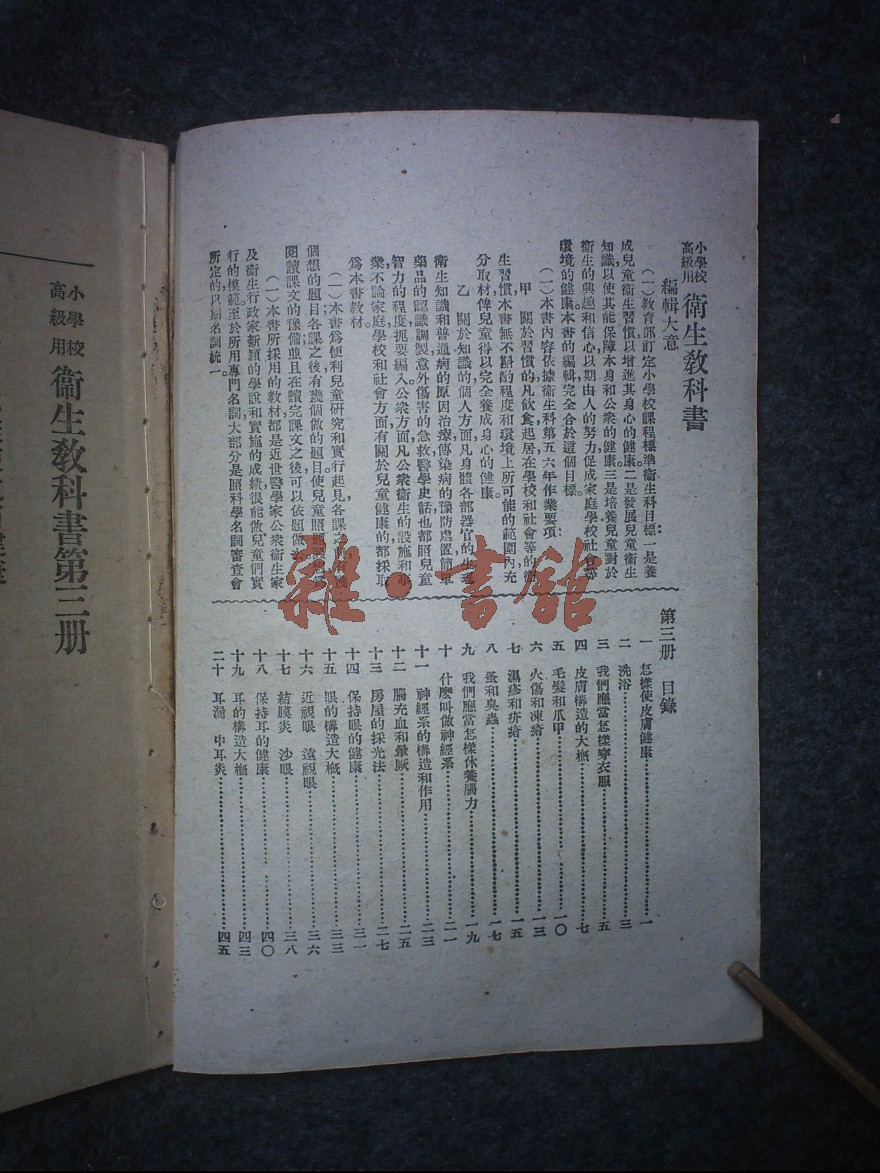 小學校
高級用
衛生教科書
編輯大意
(一)教育部訂定小學校課程標準衛生科目標:一是養
成兒童衛生習慣,以增進其身心的健康;二是發展兒童衛生
知識,以使其能保障本身和公衆的健康;三是培養兒童對於
衛生的興趣和信心,以期由人的努力,促成家庭學校社會等
環境的健康。本書的編輯,完全合於這個目標。
(一)本書內容,依據衛生科第五六年作業要項:
甲 關於習慣的 凡飲食起居在學校和社會等的衛
生習慣,本書無不斟酌程度和環境上所可能的範圍內,充
分取材,俾兒童得以完全養成身心的健康。
乙 關於知識的 個人方面,凡身體各部器官的生理
衛生知識和普通病的原因治療,傳染病的豫防處置,簡單
藥品的認識調製,意外傷害的急救,醫學史話,也都照兒童
智力的程度,扼要編入。公衆方面,凡公衆衛生的設施和
衆,不論家庭學校和社會方面,有關於兒童健康的,都採取
爲本書教材。
(一)本書爲便利兒童研究和實行起見,各課之前有幾
個想的題目,各課之後有幾個做的題目,使兒童照
閱讀課文的豫備,並且在讀完課文之後,可以依題做
(一)本書所採用的教材,都是近世醫學家公衆衛生家
及衛生行政家新穎的學說和實施的成績,很能做兒童們實
行的模範。至於所用專門名詞,大部分是照科學名詞審查會
所定的,以期名詞統一。
第三册 目錄
一 怎樣使皮膚健康……一
二 洗浴……三
三 我們應當怎樣穿衣服……五
四 皮膚構造的大槪……七
五 毛髮和爪甲……一〇
六 火傷和凍瘡……一三
七 濕疹和疥瘡……一五
八 蚤和臭蟲……一七
九 我們應當怎樣休養腦力……一九
十 什麼叫做神經系……二一
十一 神經系的構造和作用……二三
十二 腦充血和暈厥……二五
十三 房屋的採光法……二七
十四 保持眼的健康……三一
十五 眼的構造大槪……三三
十六 近視眼 遠視眼……三六
十七 結膜炎 沙眼……三八
十八 保持耳的健康……四〇
十九 耳的構造大槪……四三
二十 耳漏 中耳炎……四五
小學校
高級用
衛生教科書第三册
雜·書館